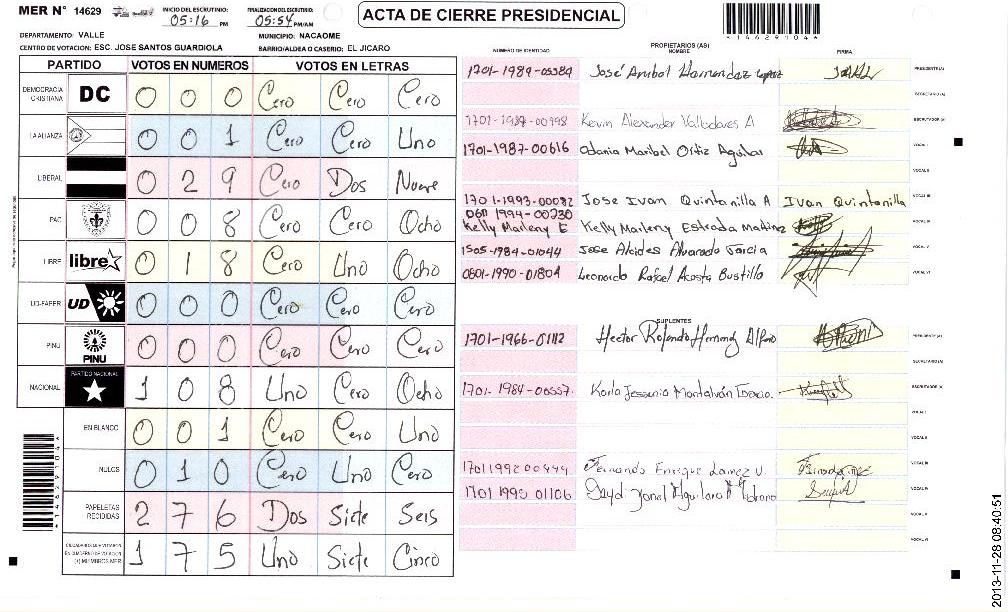 MER N° 14629 INICIO DEL ESCRUTINIO: 05:16 PM FINALIZACION DEL ESCRUTINIO: 05:54 PM/AM ACTA DE CIERRE PRESIDENCIAL
DEPARTAMENTO: VALLE MUNICIPIO: NACAOME
CENTRO DE VOTACION: ESC. JOSE SANTOS GUARDIOLA BARRIO/ALDEA O CASERIO: EL JICARO
PARTIDO VOTOS EN NUMEROS VOTOS EN LETRAS
DEMOCRACIA CRISTIANA DC 0 0 0 Cero Cero Cero
LA ALIANZA 0 0 1 Cero Cero Uno
LIBERAL 0 2 9 Cero Dos Nueve
PAC 0 0 8 Cero Cero Ocho
LIBRE libre 0 1 8 Cero Uno Ocho
UD-FAPER UD 0 0 0 Cero Cero Cero
PINU PINU 0 0 0 Cero Cero Cero
NACIONAL PARTIDO NACIONAL 1 0 8 Uno Cero Ocho
EN BLANCO 0 0 1 Cero Cero Uno
NULOS 0 1 0 Cero Uno Cero
PAPELETAS RECIBIDAS 2 7 6 Dos Siete Seis
CIUDADANOS QUE VOTARON EN CUADERNO DE VOTACION (+) MIEMBROS MER 1 7 5 Uno Siete Cinco
PROPIETARIOS (AS)
NUMERO DE IDENTIDAD NOMBRE FIRMA
1701-1989-00584 José Anibal Hernandez PRESIDENTE (A)
SECRETARIO (A)
1701-1987-00998 Kevin Alexander Valladares A ESCRUTADOR (A)
1701-1987-00616 Odania Maribel Ortiz Aguilar VOCAL I
VOCAL II
1701-1993-00032 Jose Ivan Quintanilla A Ivan Quintanilla VOCAL III
1994-00230
Kelly Marleny E Kelly Marleny Estrada Martinez VOCAL IV
1505-1984-01044 Jose Alcides Alvarado Garcia VOCAL V
0801-1990-01804 Leonardo Rafael Acosta Bustillo VOCAL VI
SUPLENTES
1701-1966-01112 Hector Rolando PRESIDENTE (A)
SECRETARIO (A)
1701-1984-00557 Karla Jessenia Montalván ESCRUTADOR (A)
VOCAL I
VOCAL II
1701199200444 Fernando Enrique VOCAL III
1701 1990 01106 VOCAL IV
VOCAL V
VOCAL VI
2013-11-28 08:40:51